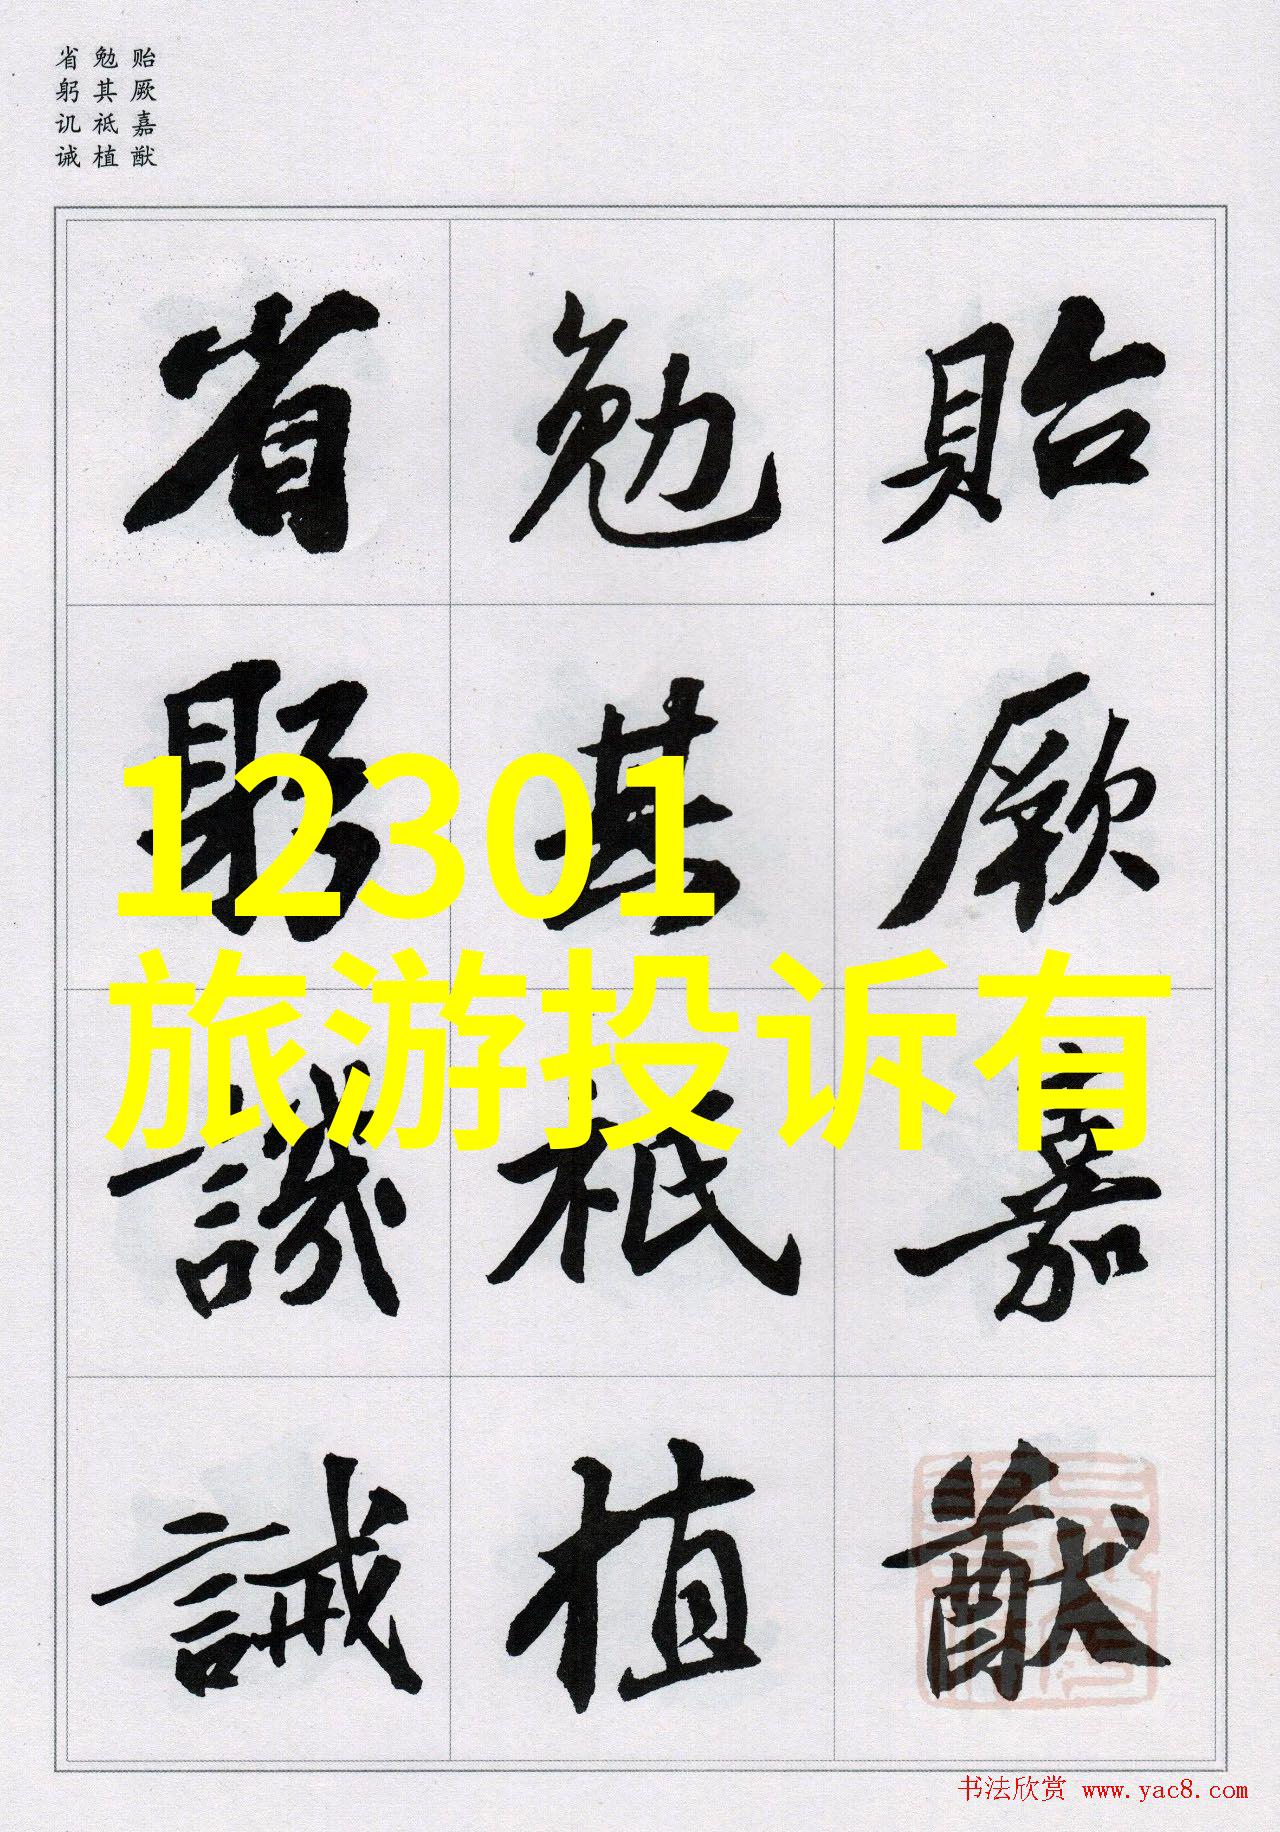 贻厥嘉猷
勉其祗植
省躬讥诫
貽厥嘉猷
勉其祗植
省躬譏誡
12301
旅游投诉有
书法欣赏 www.yac8.com